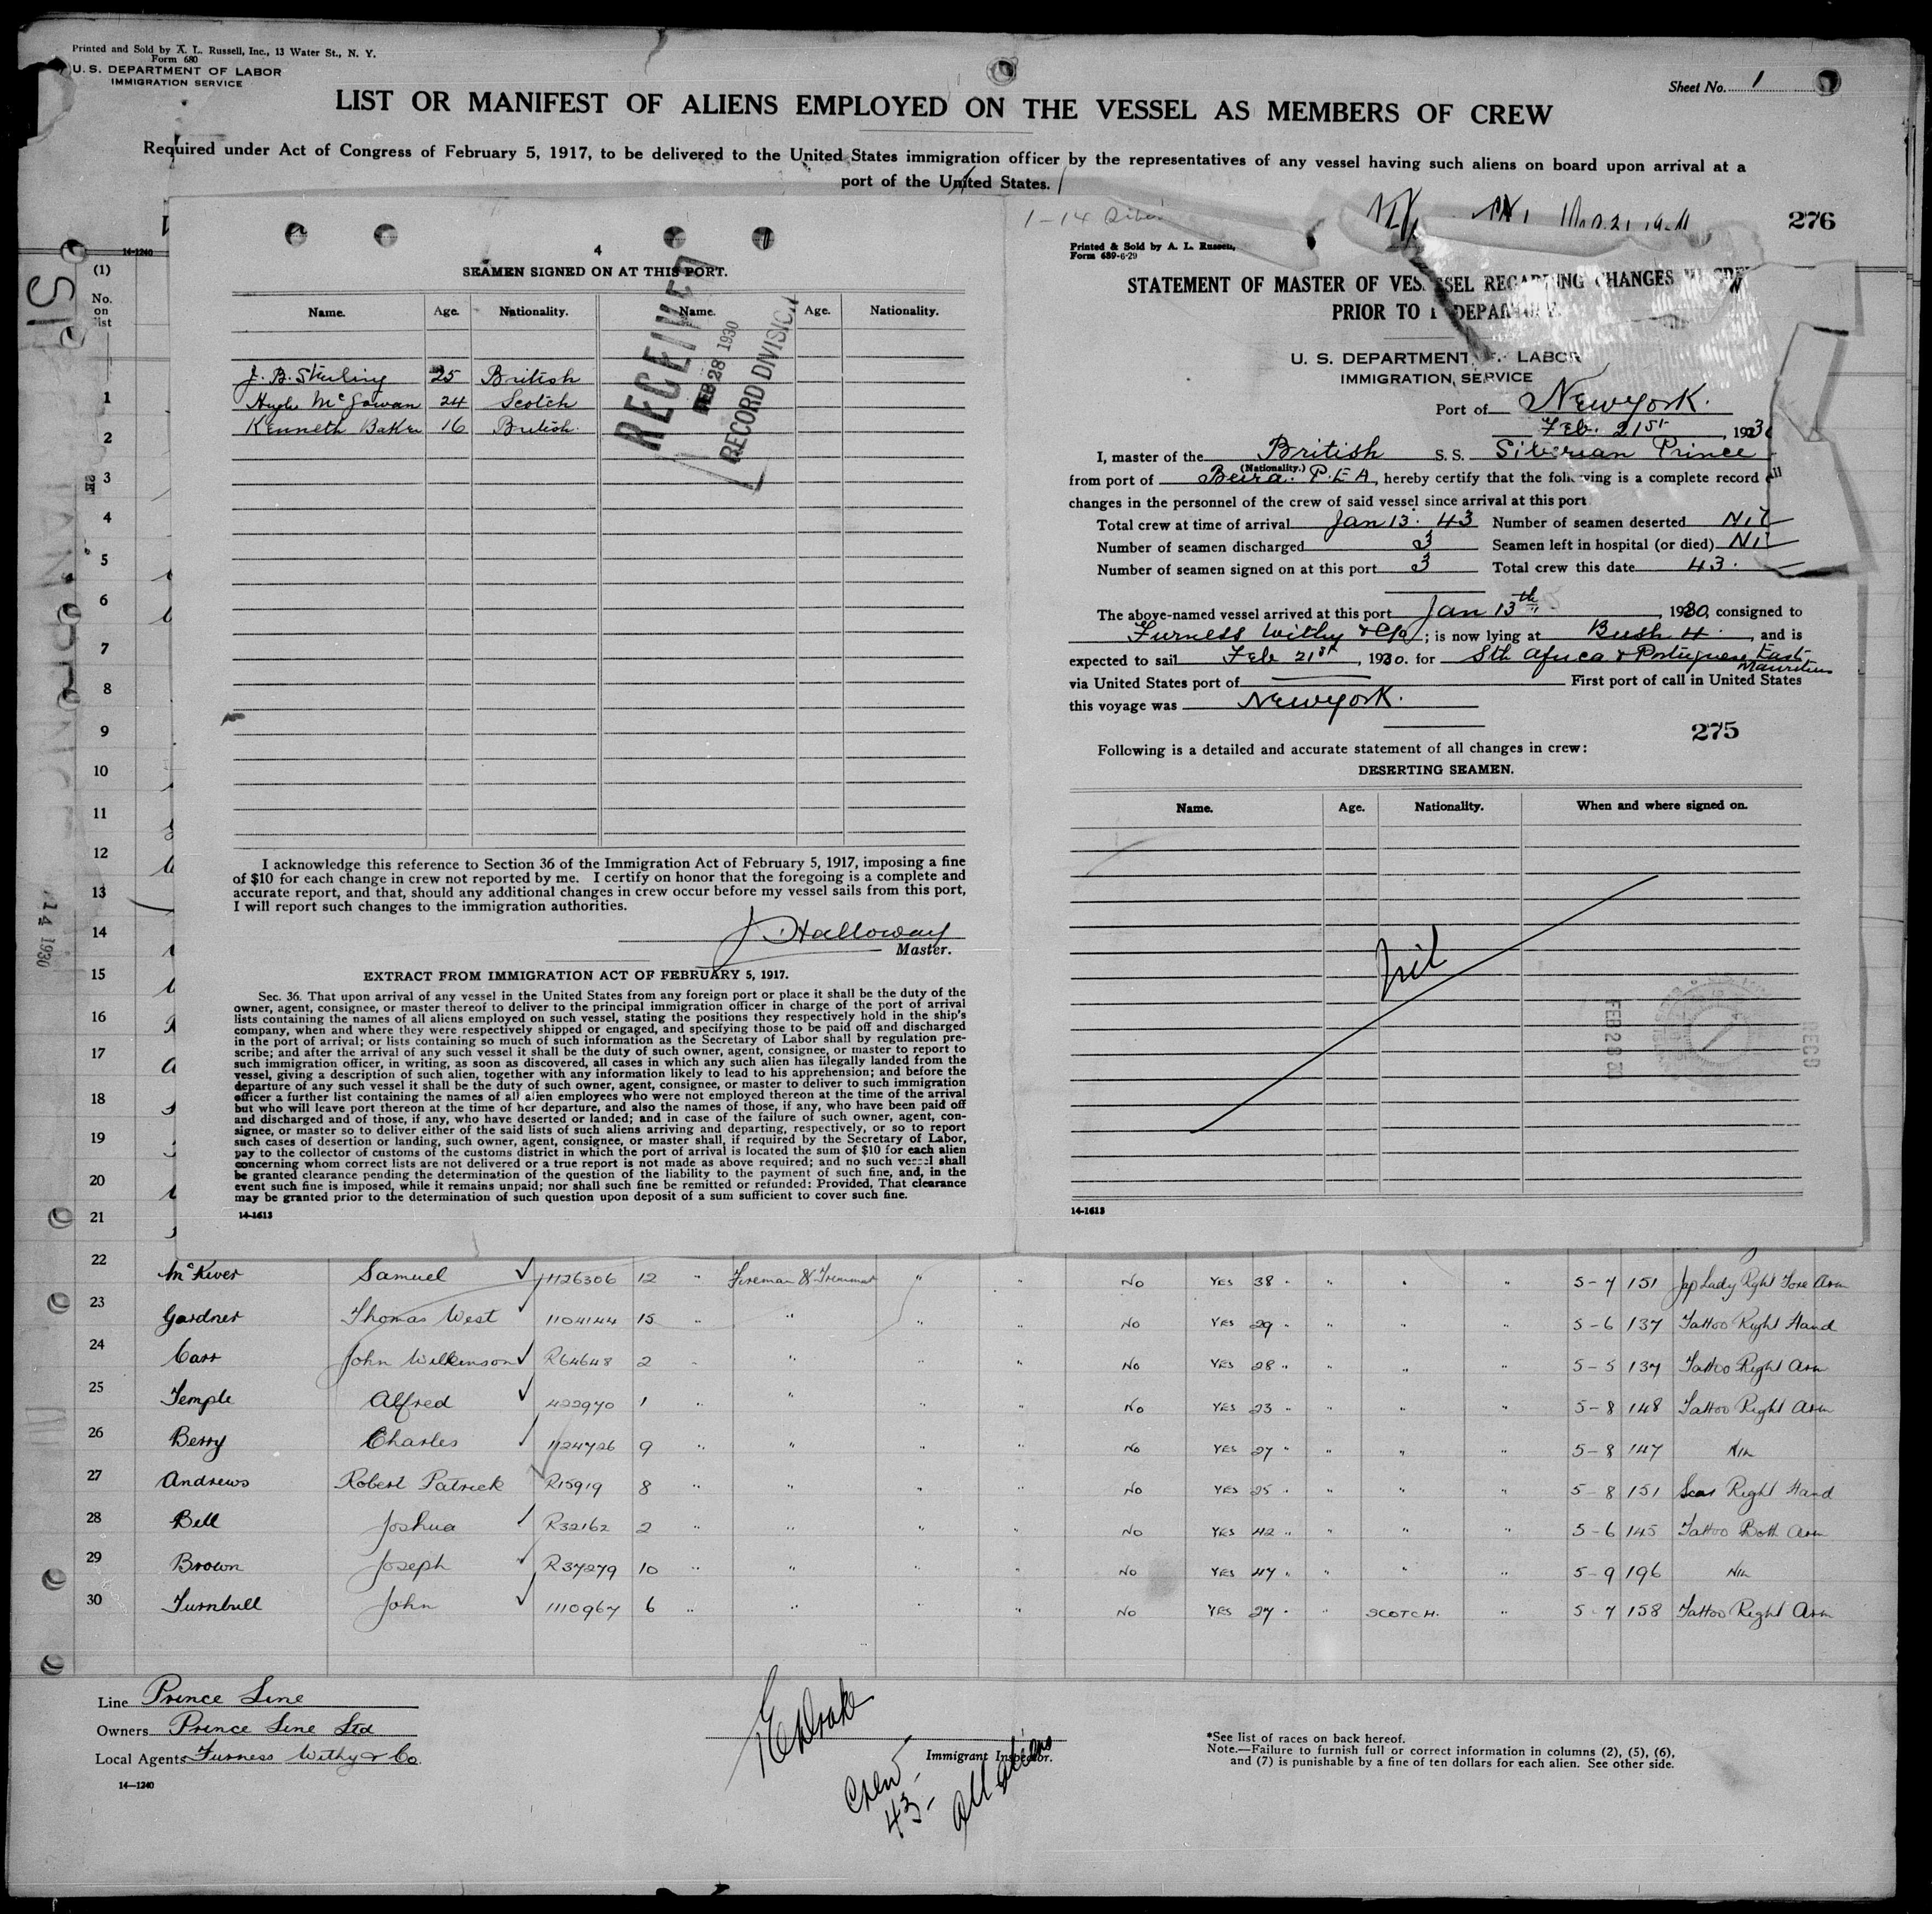 Printed and Sold by A. L. Russell, Inc., 13 Water St., N. Y.
Form 680
U. S. DEPARTMENT OF LABOR
IMMIGRATION SERVICE
Sheet No. 1
LIST OR MANIFEST OF ALIENS EMPLOYED ON THE VESSEL AS MEMBERS OF CREW
Required under Act of Congress of February 5, 1917, to be delivered to the United States immigration officer by the representatives of any vessel having such aliens on board upon arrival at a
port of the United States.
276
14-1240
(1)
No.
on
list
1
2
3
4
5
6
7
8
9
10
11
12
13
14
15
16
17
18
19
20
21
14 1930
4
SEAMEN SIGNED ON AT THIS PORT.
Name. Age. Nationality. Name. Age. Nationality.
J. B. Sterling 25 British
Hugh McGowan 24 Scotch
Kenneth Baker 16 British.
RECEIVED
FEB 28 1930
RECORD DIVISION
I acknowledge this reference to Section 36 of the Immigration Act of February 5, 1917, imposing a fine
of $10 for each change in crew not reported by me. I certify on honor that the foregoing is a complete and
accurate report, and that, should any additional changes in crew occur before my vessel sails from this port,
I will report such changes to the immigration authorities.
J Holloway
Master.
EXTRACT FROM IMMIGRATION ACT OF FEBRUARY 5, 1917.
Sec. 36. That upon arrival of any vessel in the United States from any foreign port or place it shall be the duty of the
owner, agent, consignee, or master thereof to deliver to the principal immigration officer in charge of the port of arrival
lists containing the names of all aliens employed on such vessel, stating the positions they respectively hold in the ship's
company, when and where they were respectively shipped or engaged, and specifying those to be paid off and discharged
in the port of arrival; or lists containing so much of such information as the Secretary of Labor shall by regulation pre-
scribe; and after the arrival of any such vessel it shall be the duty of such owner, agent, consignee, or master to report to
such immigration officer, in writing, as soon as discovered, all cases in which any such alien has illegally landed from the
vessel, giving a description of such alien, together with any information likely to lead to his apprehension; and before the
departure of any such vessel it shall be the duty of such owner, agent, consignee, or master to deliver to such immigration
officer a further list containing the names of all alien employees who were not employed thereon at the time of the arrival
but who will leave port thereon at the time of her departure, and also the names of those, if any, who have been paid off
and discharged and of those, if any, who have deserted or landed; and in case of the failure of such owner, agent, con-
signee, or master so to deliver either of the said lists of such aliens arriving and departing, respectively, or so to report
such cases of desertion or landing, such owner, agent, consignee, or master shall, if required by the Secretary of Labor,
pay to the collector of customs of the customs district in which the port of arrival is located the sum of $10 for each alien
concerning whom correct lists are not delivered or a true report is not made as above required; and no such vessel shall
be granted clearance pending the determination of the question of the liability to the payment of such fine, and, in the
event such fine is imposed, while it remains unpaid; nor shall such fine be remitted or refunded: Provided, That clearance
may be granted prior to the determination of such question upon deposit of a sum sufficient to cover such fine.
14-1613
1-14
Printed & Sold by A. L. Russell,
Form 689-6-29
STATEMENT OF MASTER OF VESSEL REGARDING CHANGES IN CREW
PRIOR TO DEPARTURE
U. S. DEPARTMENT OF LABOR
IMMIGRATION SERVICE
Port of New York.
Feb. 21st, 193
I, master of the British S. S. Siberian Prince
(Nationality.)
from port of Beira. P.E.A, hereby certify that the following is a complete record all
changes in the personnel of the crew of said vessel since arrival at this port
Total crew at time of arrival Jan 13. 43 Number of seamen deserted Nil
Number of seamen discharged 3 Seamen left in hospital (or died) Nil
Number of seamen signed on at this port 3 Total crew this date 43.
The above-named vessel arrived at this port Jan 13th, 1930, consigned to
Furness Withy & Co; is now lying at Bush 4., and is
expected to sail Feb 21st, 1930. for Sth Africa & Portuguese East
Mauritius
via United States port of First port of call in United States
this voyage was New York.
275
Following is a detailed and accurate statement of all changes in crew:
DESERTING SEAMEN.
Name. Age. Nationality. When and where signed on.
Nil
FEB 28
RECD
14-1613
22 McKever Samuel ✓ 1126306 12 " Fireman & Trimmer " " No YES 38 " " " " 5-7 151 Jap Lady Right Fore Arm
23 Gardner Thomas West ✓ 1104144 15 " " " " No YES 29 " " " " 5-6 137 Tattoo Right Hand
24 Carr John Wilkinson ✓ R64648 2 " " " " No YES 28 " " " " 5-5 137 Tattoo Right Arm
25 Temple Alfred ✓ 422970 1 " " " No YES 23 " " " " 5-8 148 Tattoo Right Arm
26 Berry Charles ✓ 1124726 9 " " " " No YES 27 " " " " 5-8 147 Nil
27 Andrews Robert Patrick ✓ R15919 8 " " " " No YES 25 " " " " 5-8 151 Scar Right Hand
28 Bell Joshua ✓ R32162 2 " " " " No YES 42 " " " " 5-6 145 Tattoo Both Arm
29 Brown Joseph ✓ R37279 10 " " " " No YES 47 " " " " 5-9 196 Nil
30 Turnbull John ✓ 1110967 6 " " " " No YES 27 " " SCOTCH. " 5-7 158 Tattoo Right Arm
Line Prince Line
Owners Prince Line Ltd
Local Agents Furness Withy & Co.
14—1240
E Drake
Immigrant Inspector.
Crew
43-
All aliens
*See list of races on back hereof.
Note.—Failure to furnish full or correct information in columns (2), (5), (6),
and (7) is punishable by a fine of ten dollars for each alien. See other side.